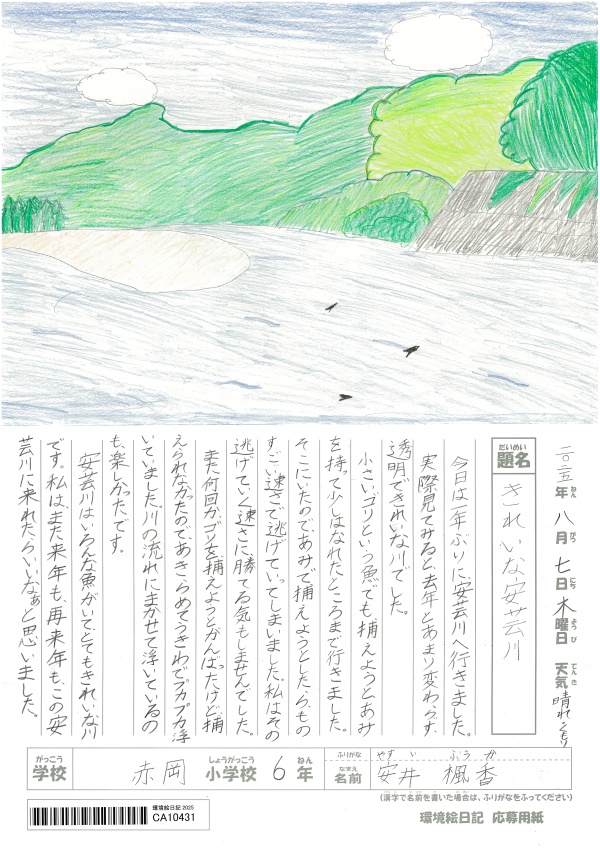 二〇二五年ねん 八月がつ 七日にち 木曜日ようび 天気てんき 晴れくもり
だいめい
題名 きれいな安芸川
今日は一年ぶりに、安芸川へ行きました。
実際見てみると、去年とあまり変わらず、
透明できれいな川でした。
小さいゴリという魚でも捕えようとあみ
を持って少しはなれたところまで行きました。
そこにいたのであみで捕えようとしたら、もの
すごい速さで逃げていってしまいました。私はその
逃げていく速さに勝てる気もしませんでした。
また何回かゴリを捕えようとがんばったけど、捕
えられなかったのであきらめてうきわでプカプカ浮
いていました。川の流れにまかせて浮いているの
も、楽しかったです。
安芸川はいろんな魚がいて、とてもきれいな川
です。私は、また来年も、再来年も、この安
芸川に来れたらいいなぁと思いました。
がっこう
学校 赤岡 小学校しょうがっこう 6年ねん
ふりがな やすい ふうか
なまえ
名前 安井 楓香
(漢字で名前を書いた場合は、ふりがなをふってください)
環境絵日記 応募用紙
環境絵日記 2025
CA10431